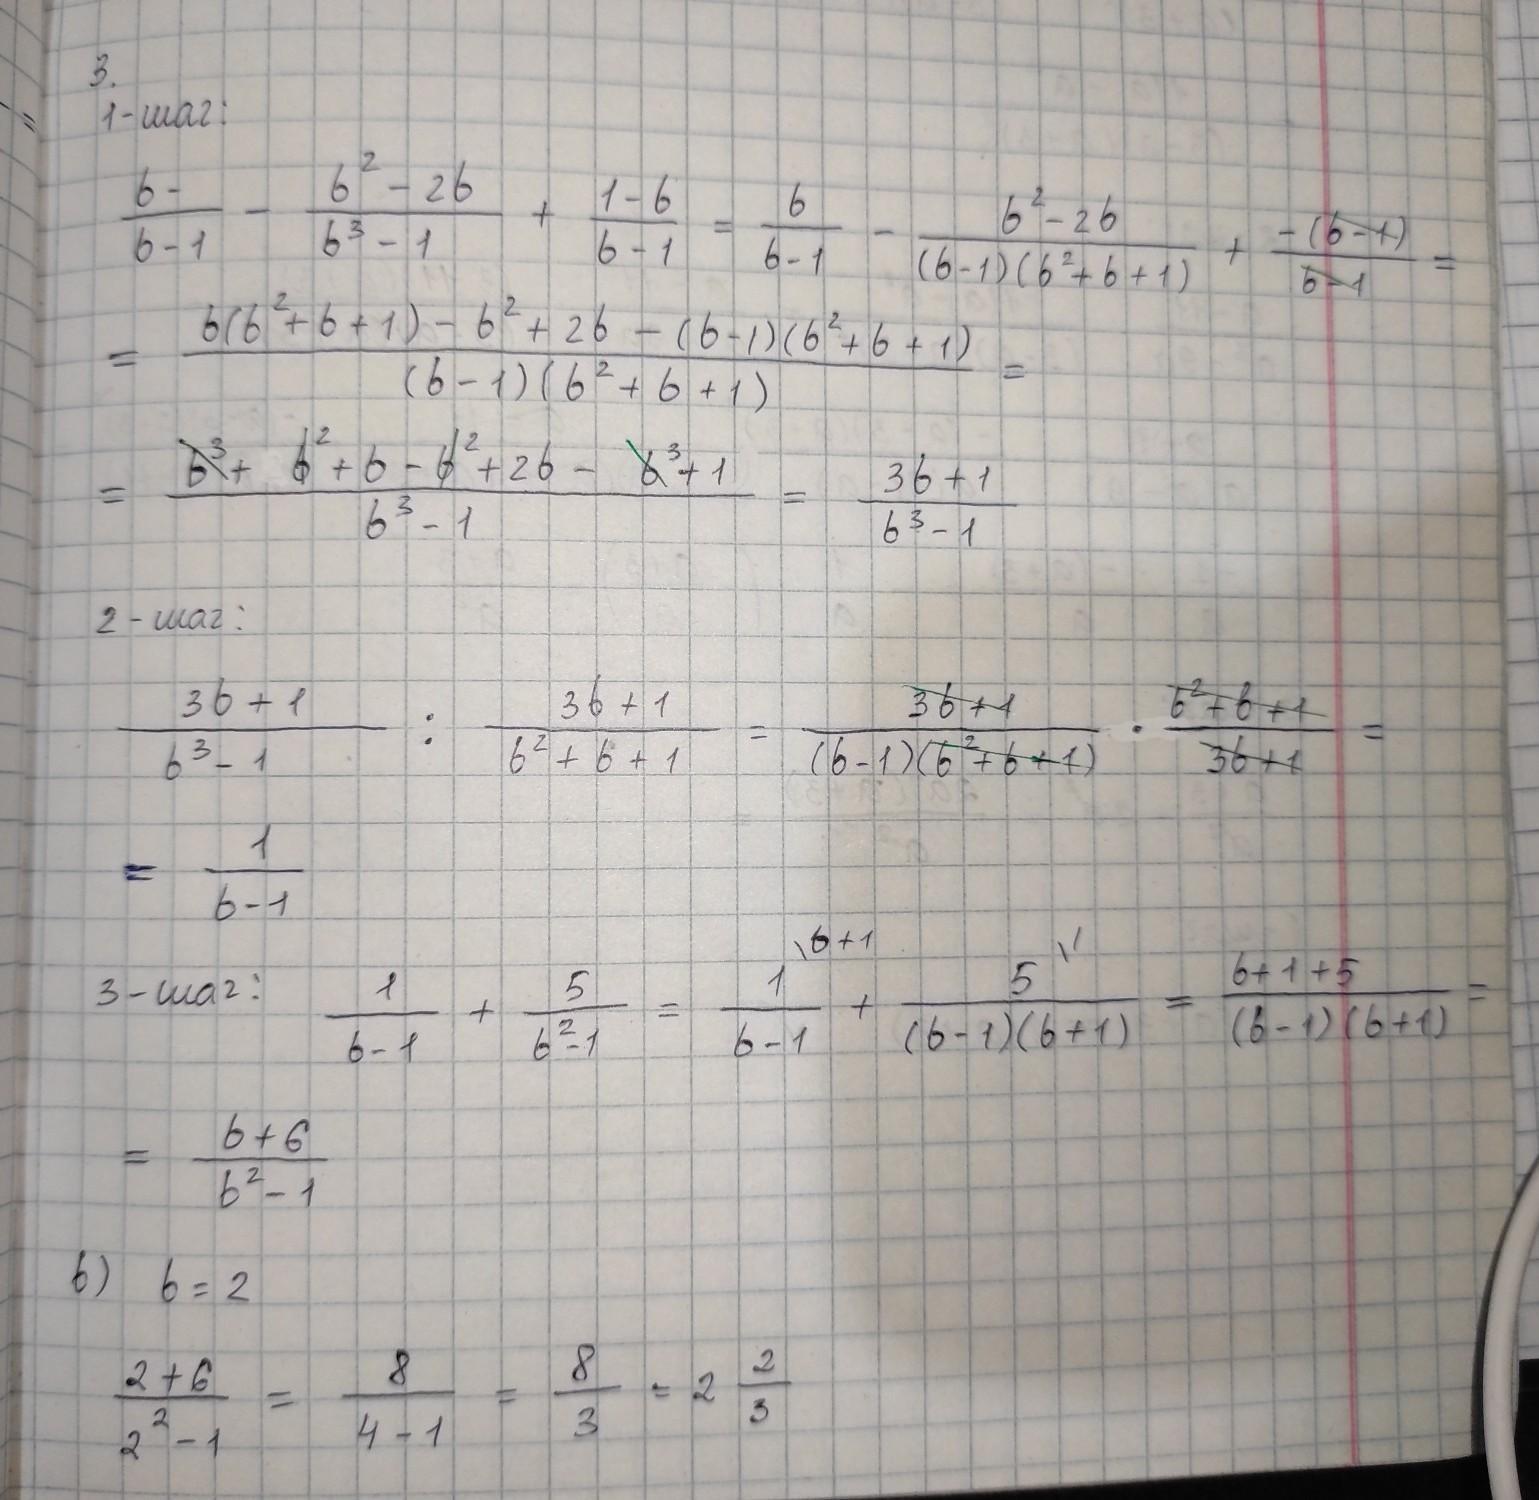 3.
1-шаг:
b-/(b-1) - (b²-2b)/(b³-1) + (1-b)/(b-1) = b/(b-1) - (b²-2b)/((b-1)(b²+b+1)) + -(b-1)/(b-1) =
= (b(b²+b+1)-b²+2b-(b-1)(b²+b+1))/((b-1)(b²+b+1)) =
= (b³+b²+b-b²+2b-b³+1)/(b³-1) = (3b+1)/(b³-1)
2-шаг:
(3b+1)/(b³-1) : (3b+1)/(b²+b+1) = (3b+1)/((b-1)(b²+b+1)) · (b²+b+1)/(3b+1) =
= 1/(b-1)
3-шаг: 1/(b-1) + 5/(b²-1) = 1\b+1/(b-1) + 5\1/((b-1)(b+1)) = (b+1+5)/((b-1)(b+1)) =
= (b+6)/(b²-1)
b) b=2
(2+6)/(2²-1) = 8/(4-1) = 8/3 = 2 2/3